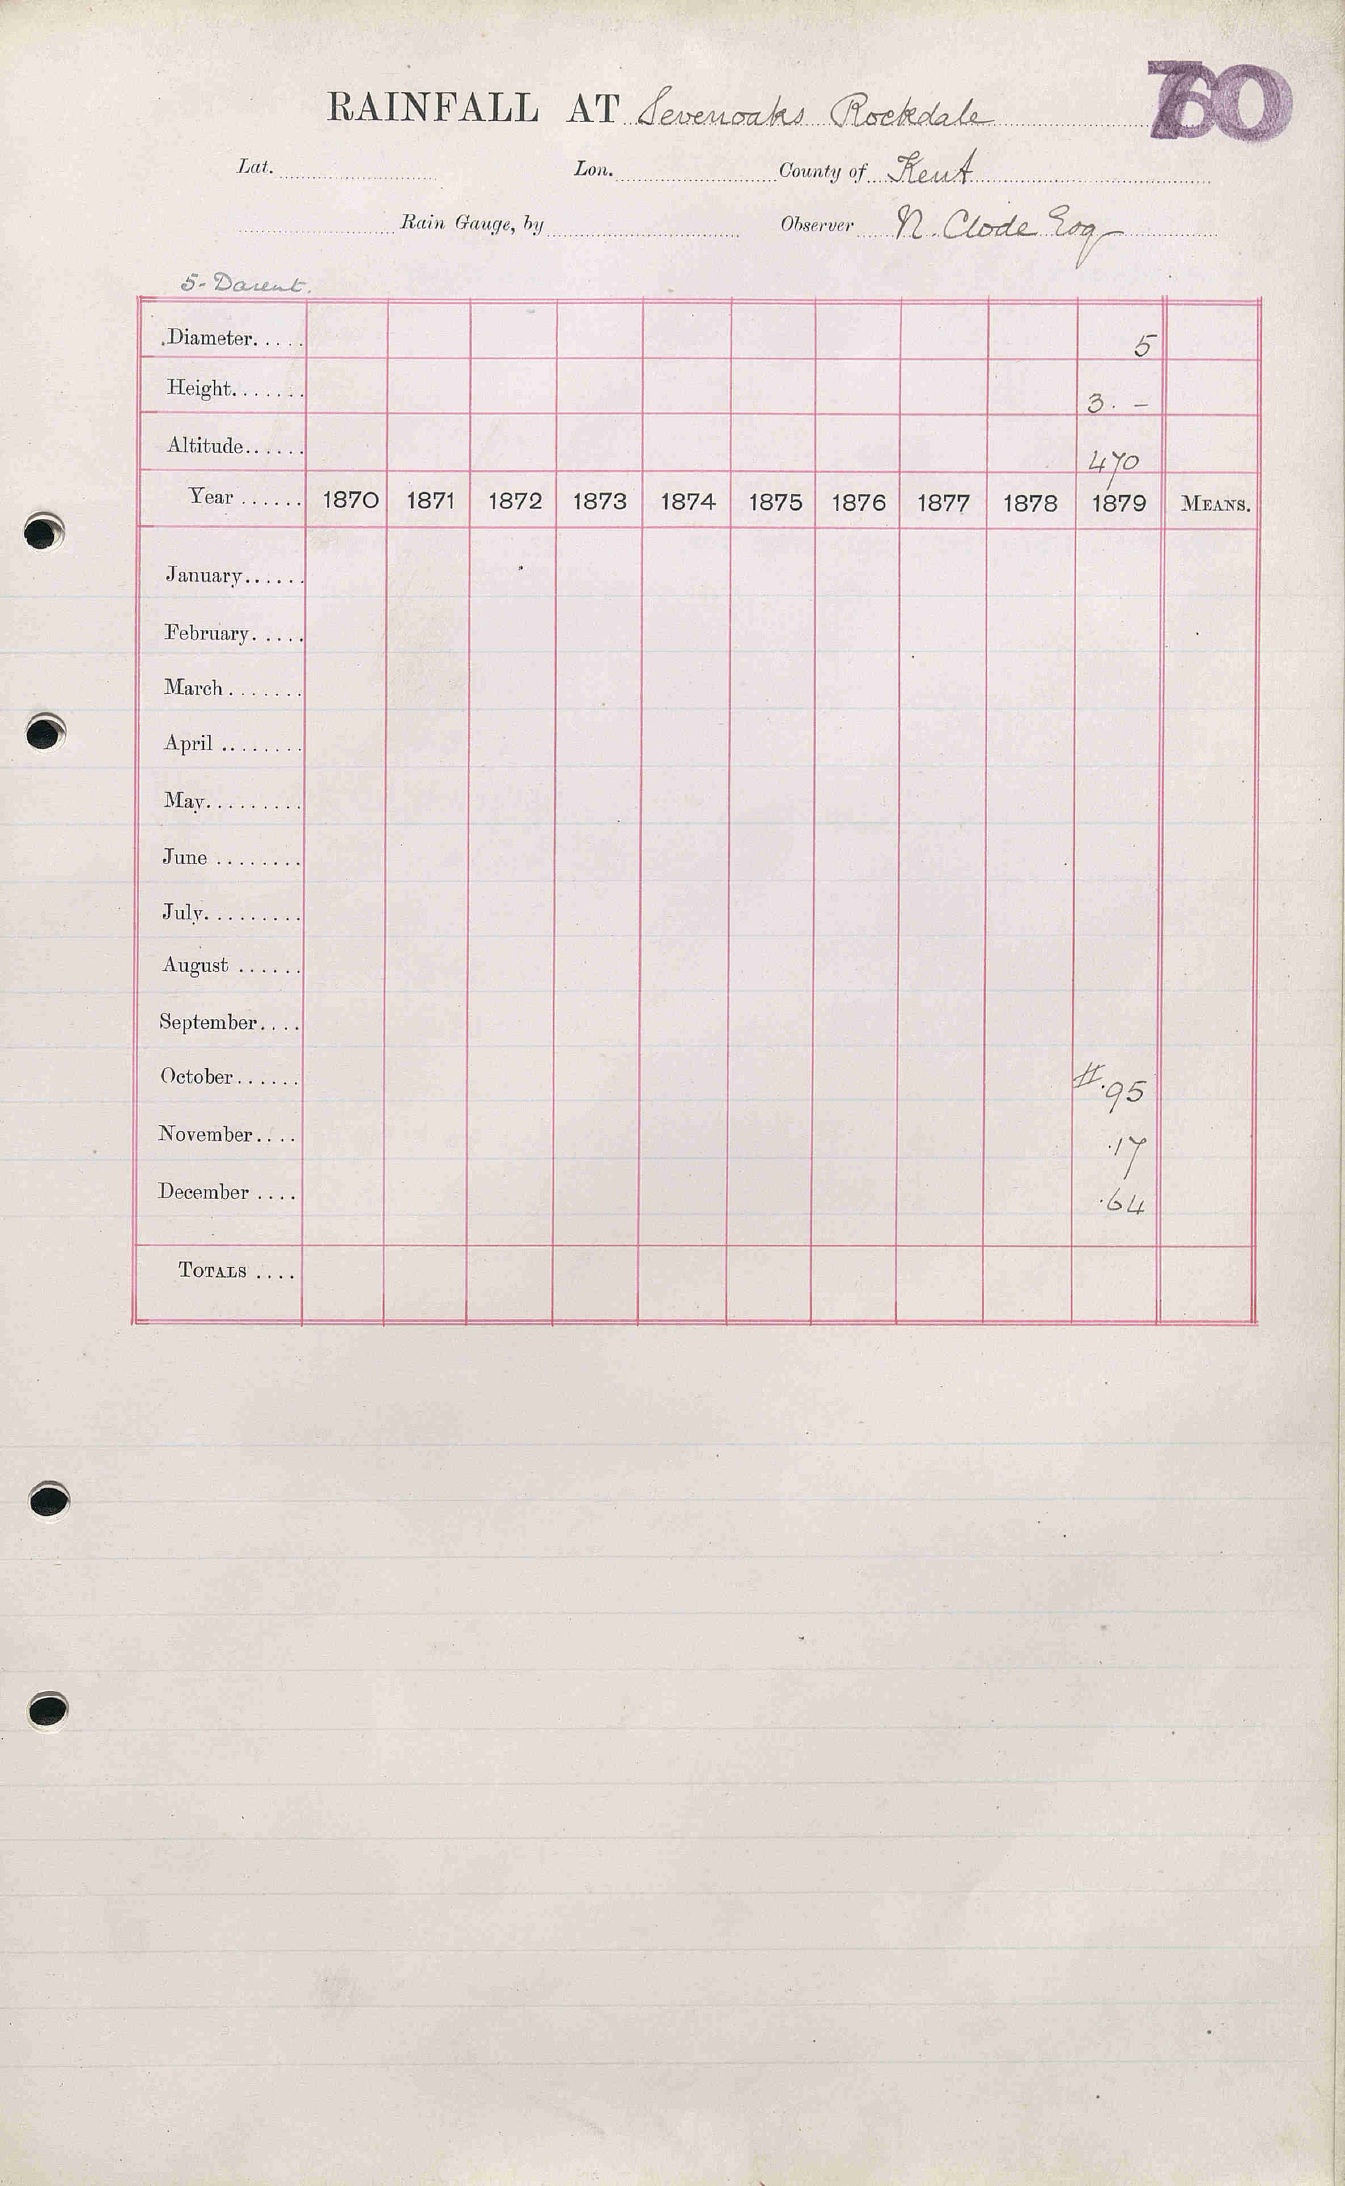 RAINFALL AT Sevenoaks Rockdale
Lat. Lon. County of Kent
Rain Gauge, by Observer N. Clode Esq
5 - Darent.
Diameter..... 5
Height....... 3. -
Altitude...... 470
Year ...... 1870 1871 1872 1873 1874 1875 1876 1877 1878 1879 MEANS.
January......
February.....
March.......
April ........
May.........
June ........
July.........
August ......
September....
October...... #.95
November.... .17
December .... .64
TOTALS ....